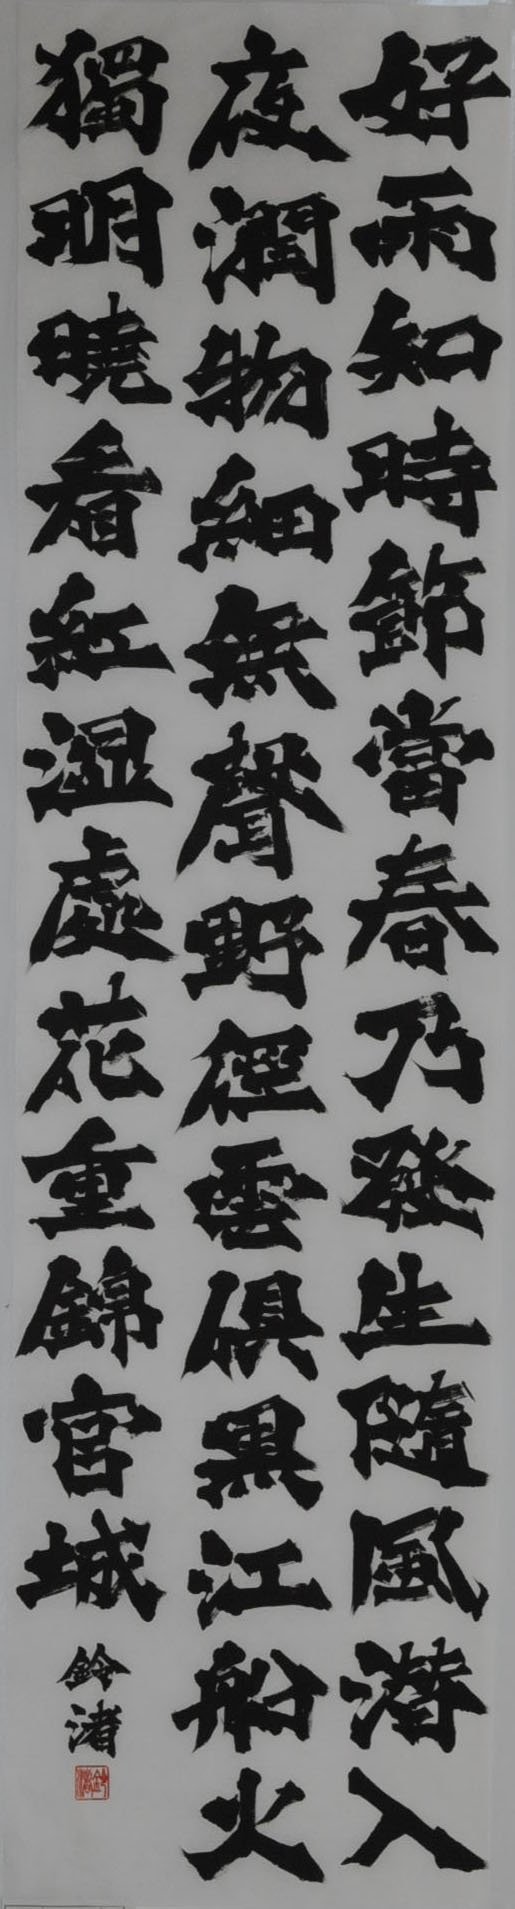 好雨知時節當春乃發生隨風潜入
夜潤物細無聲野徑雲俱黑江船火
獨明曉看紅湿處花重錦官城
鈴渚